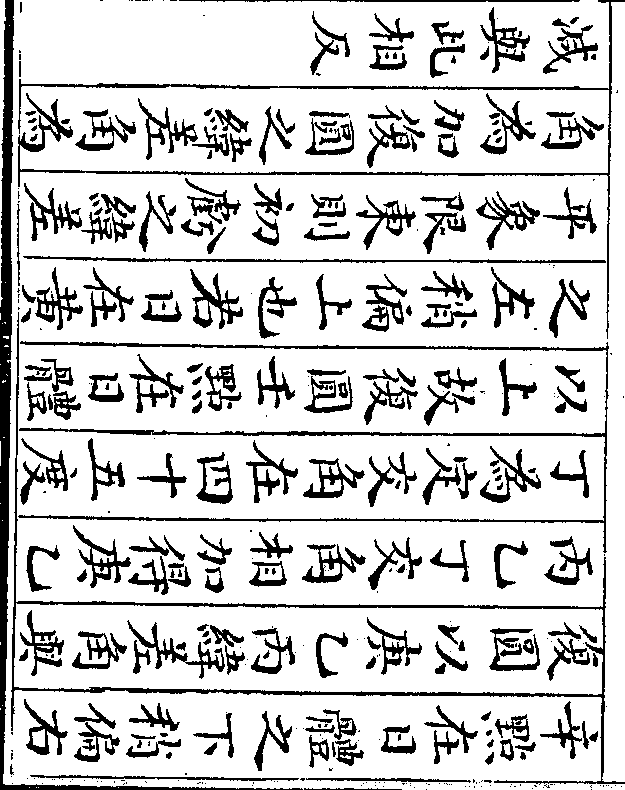 辛點在日體之下稍偏右
復圓以庚乙丙緯差角與
丙乙丁交角相加得庚乙
丁為定交角在四十五度
以上故復圓壬點在日體
之左稍偏上也若日在黃
平象限東則初虧之緯差
角為加復圓之緯差角為
減與此相反